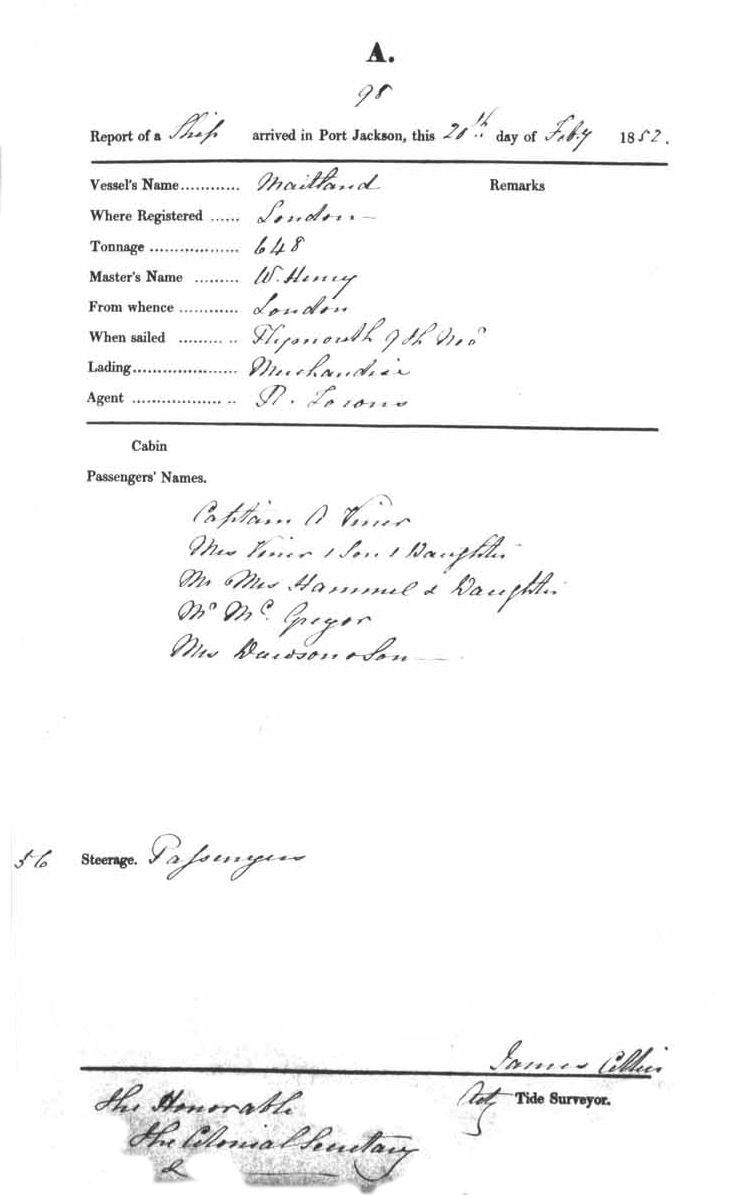 A.
98
Report of a Ship arrived in Port Jackson, this 20th day of Feby 1852.
Vessel's Name............ Maitland Remarks
Where Registered ...... London
Tonnage .................. 648
Master's Name ......... W. Henry
From whence ............ London
When sailed ......... .. Plymouth 9th Novr
Lading..................... Merchandise
Agent .................. .. R. Towns
Cabin
Passengers' Names.
Captain A Viner
Mrs Viner 1 Son 1 Daughter
Mr & Mrs Hammel & Daughter
Mr Mc. Gregor
Mrs Dawson & Son
56 Steerage. Passengers
James
Actg Tide Surveyor.
The Honorable
The Colonial Secretary
&